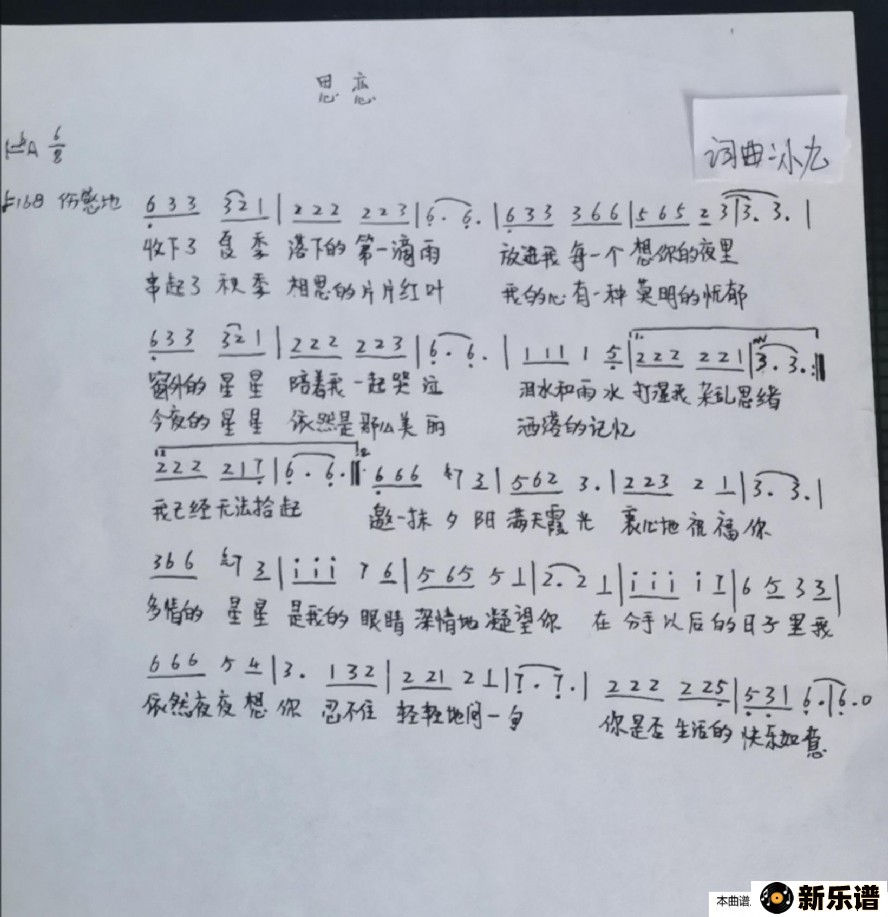 思恋
1=♭A 6/8
词曲:小九
♩=168 伤感地 6 3 3 3 2 1 | 2 2 2 2 2 3 | 6. 6. | 6 3 3 3 6 6 | 5 6 5 2 3 | 3. 3. |
收下了 夏季 落下的 第一滴雨 放进我 每一个 想你的夜里
串起了 秋季 相思的片片红叶 我的心有一种 莫明的忧郁
6 3 3 3 2 1 | 2 2 2 2 2 3 | 6. 6. | 1 1 1 1 5 | 1. 2 2 2 2 2 1 | 3. 3. :||
窗外的 星星 陪着我 一起哭泣 泪水和雨水 打湿我 杂乱思绪
今夜的 星星 依然是 那么美丽 洒落的记忆
2. 2 2 2 2 1 7 | 6. 6. || 6 6 6 #7 3 | 5 6 2 3. | 2 2 3 2 1 | 3. 3. |
我已经 无法拾起 邀一抹 夕阳 满天霞光 衷心地 祝福你
3 6 6 #7 3 | i i i 7 6 | 5 6 5 5 1 | 2. 2 1 | i i i i 7 | 6 5 3 3 |
多情的 星星 是我的 眼睛 深情地 凝望你 在 分手以后的日子里我
6 6 6 5 4 | 3. 1 3 2 | 2 2 1 2 1 | 7. 7. | 2 2 2 2 2 5 | 5 3 1 6. | 6. 0
依然夜夜想你 忍不住 轻轻地问一句 你是否 生活的 快乐如意
本曲谱
新乐谱